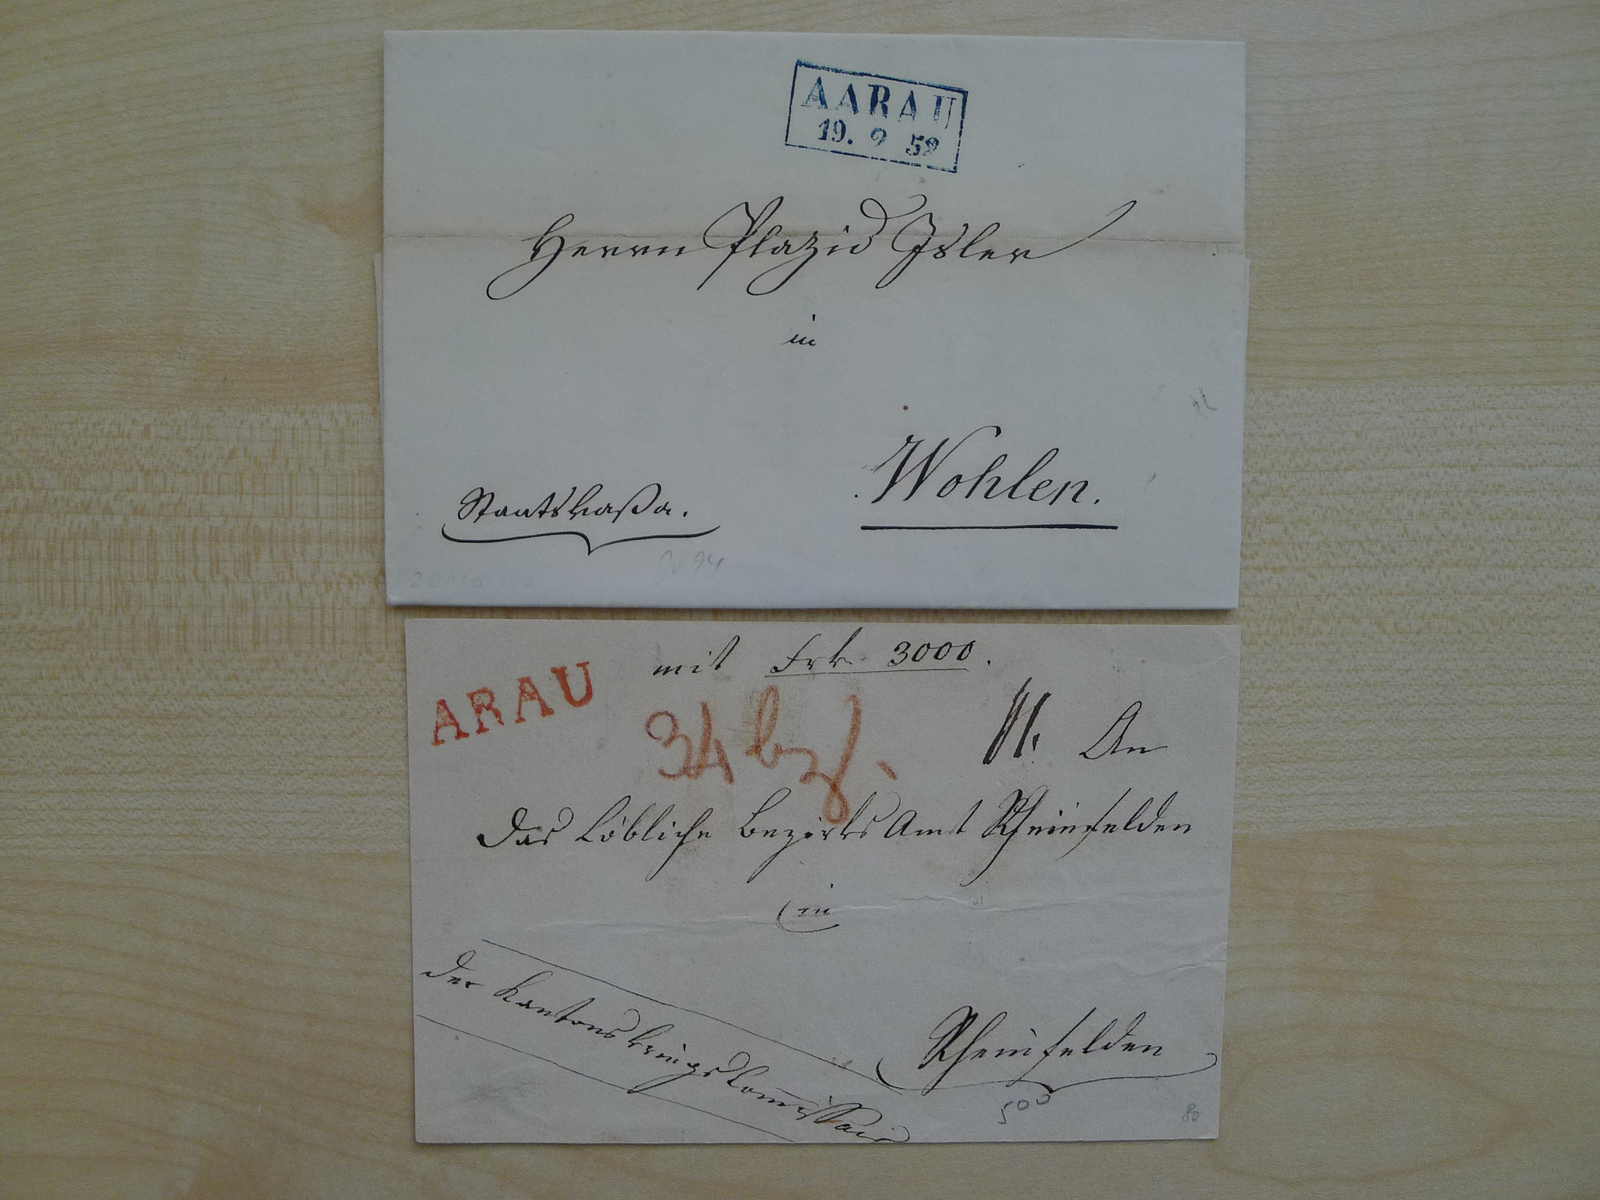 AARAU
19. 9 52
Herrn Plazid Isler
in
Wohlen.
Staatskaßa.
mit Frk. 3000.
ARAU
34 bz.
An
Das Löbliche Bezirks Amt Rheinfelden
in
Rheinfelden
Der Kantonskriegs Commissair
500
80